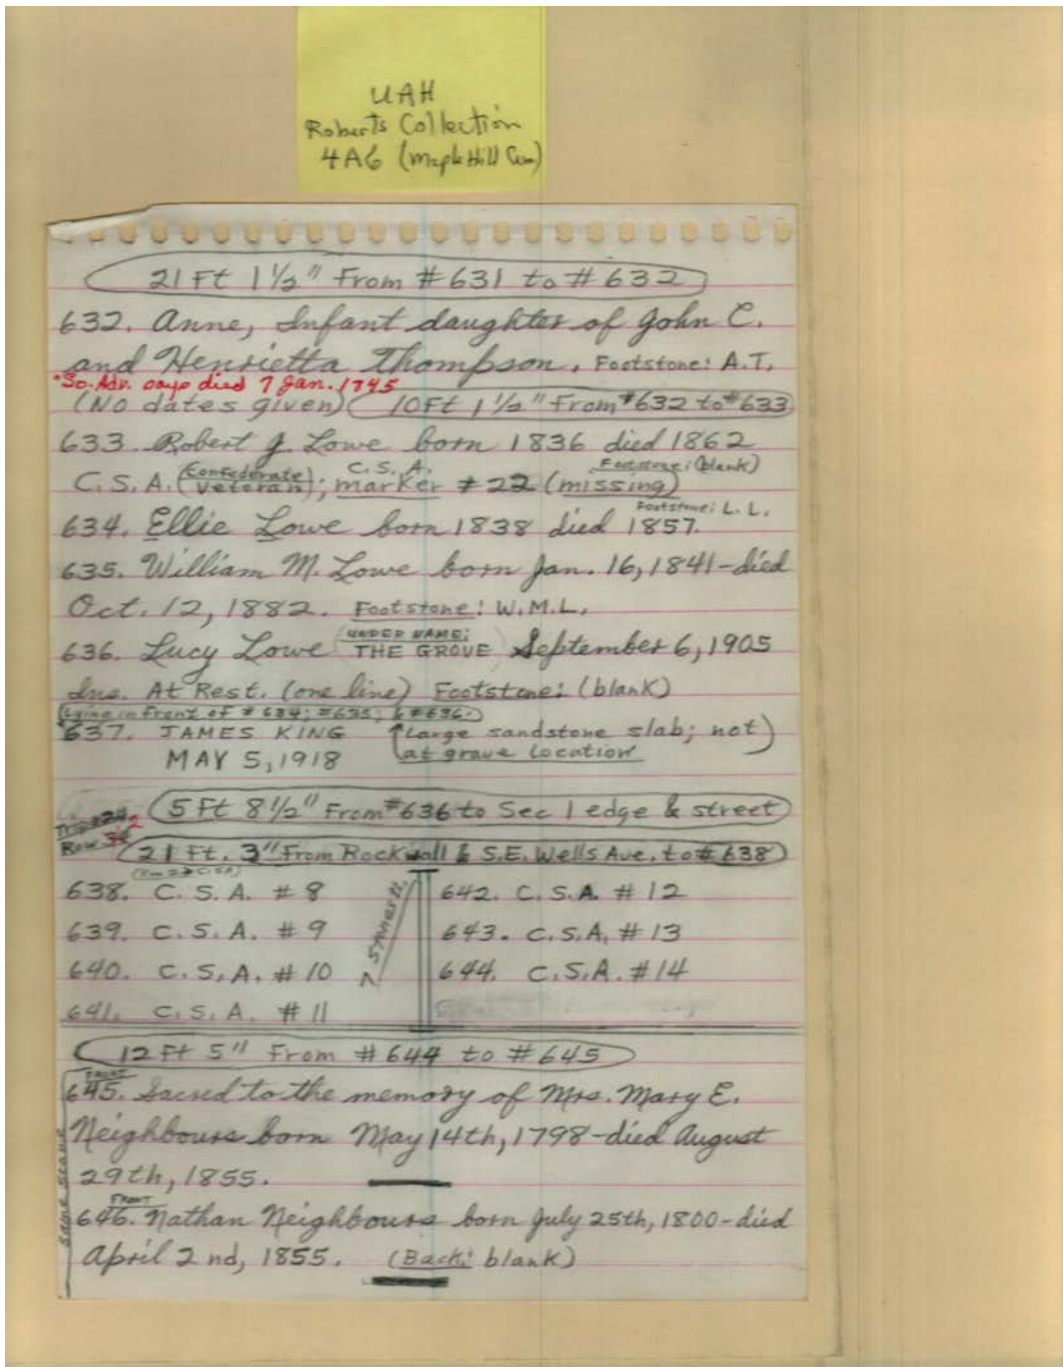 UAH
Roberts Collection
4A6 (Maple Hill Cem)
21 Ft 1 1/2" From #631 to #632
632. Anne, Infant daughter of John C.
and Henrietta Thompson. Footstone: A.T.
*So. Adv. says died 7 Jan. 1845
(No dates given) 10Ft 1 1/2" From #632 to #633
633. Robert J. Lowe born 1836 died 1862
C.S.A. (Confederate Veteran); C.S.A. marker #22 (missing) Footstone: (blank)
634. Ellie Lowe born 1838 died 1857. Footstone: L.L.
635. William M. Lowe born Jan. 16, 1841-died
Oct. 12, 1882. Footstone: W.M.L.
636. Lucy Lowe (UNDER NAME: THE GROVE) September 6, 1905
Ins. At Rest. (one line) Footstone: (blank)
Lying in front of #634; #635; & #636.
637. JAMES KING (Large sandstone slab; not)
MAY 5, 1918 at grave location
5 Ft 8 1/2" From #636 to Sec 1 edge & street
Row 2
21 Ft. 3" From Rockwall & S.E. Wells Ave. to #638
638. C.S.A. #8
639. C.S.A. #9
640. C.S.A. #10
641. C.S.A. #11
642. C.S.A. #12
643. C.S.A. #13
644. C.S.A. #14
12 Ft 5" From #644 to #645
FRONT
645. Sacred to the memory of Mrs. Mary E.
Neighbours born May 14th, 1798-died August
29th, 1855.
FRONT
646. Nathan Neighbours born July 25th, 1800-died
April 2nd, 1855. (Back: blank)
Same stone